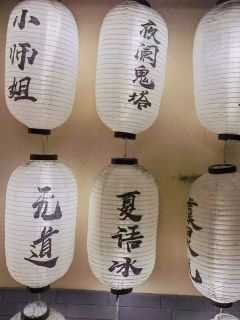 小师姐
夜阑鬼塔
无道
夏语冰